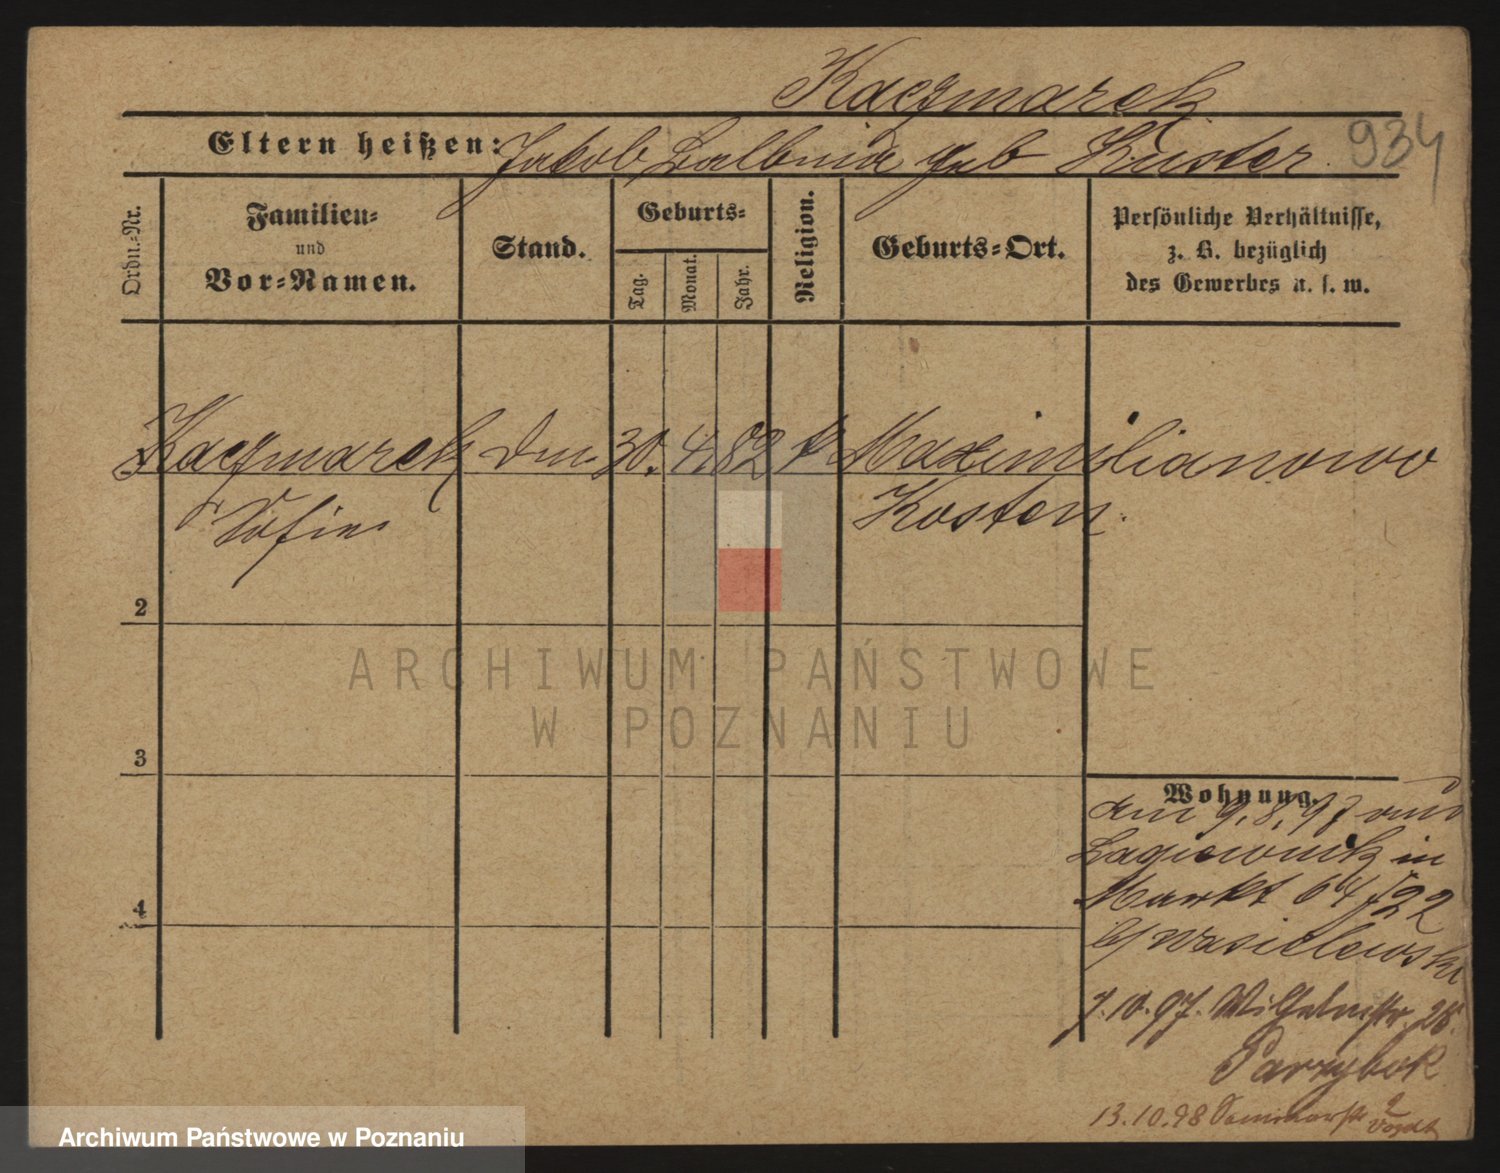 Kaczmarek
934
Eltern heißen: Jakob, Balbina geb Kuster
Ordn.-Nr.
Familien-
und
Vor-Namen.
Stand.
Geburts-
Tag.
Monat.
Jahr.
Religion.
Geburts-Ort.
Persönliche Verhältnisse,
z. B. bezüglich
des Gewerbes u. s. w.
Kaczmarek 30. 4. 82 k Maximilianowo
Sofie Kosten.
2
3
4
Wohnung.
am 9.8.97 von
Lagiewnik in
Markt 64/22
b/ Wasielewski
7.10.97. Wilhelmstr. 26.
Parzybok
13.10.98
ARCHIWUM PAŃSTWOWE
W POZNANIU
Archiwum Państwowe w Poznaniu